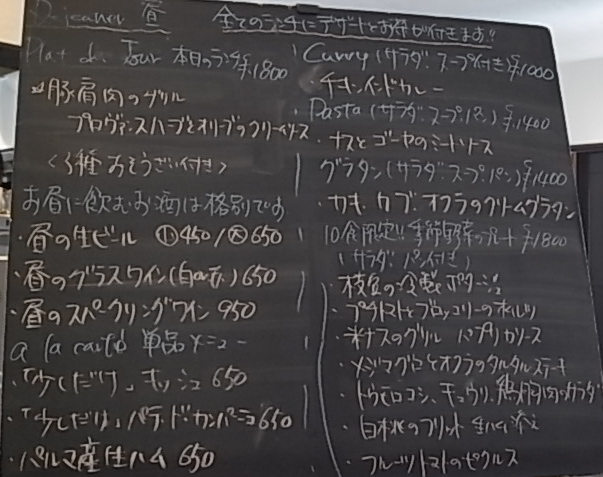 Dejeuner 昼 全てのランチにデザートとお茶が付きます!!
Plat du Jour 本日のランチ ¥1800
豚肩肉のグリル
プロヴァンスハーブとオリーブのクリームソース
〈3種おそうざい付き〉
お昼に飲むお酒は格別です
・昼の生ビール ㊥450/㊛650
・昼のグラスワイン(白or赤) 650
・昼のスパークリングワイン 950
a la carte 単品メニュー
・「少しだけ」キッシュ 650
・「少しだけ」パテ・ド・カンパーニュ 650
・パルマ産生ハム 650
Curry (サラダ・スープ付き) ¥1000
・チキンインドカレー
Pasta (サラダ・スープ・パン) ¥1400
・ナスとゴーヤのミートソース
グラタン (サラダ・スープ・パン) ¥1400
・カキ、カブ、オクラのクリームグラタン
10食限定!! 季節野菜のプレート ¥1800
(サラダ・パン付き)
・枝豆の冷製ポタージュ
・プチトマトとブロッコリーの
・米ナスのグリル パプリカソース
・メジマグロとオクラのタルタルステーキ
・トウモロコシ、キュウリ、鶏胸肉のサラダ
・白桃のフリット 生ハム添え
・フルーツトマトのピクルス